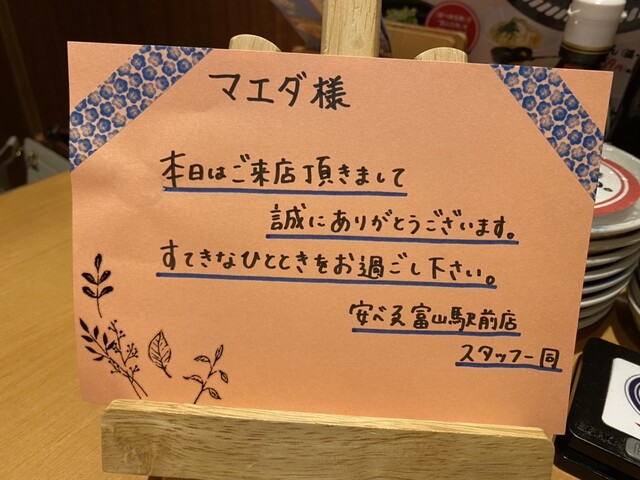 マエダ様
本日はご来店頂きまして
誠にありがとうございます。
すてきなひとときをお過ごし下さい。
安べゑ富山駅前店
スタッフ一同